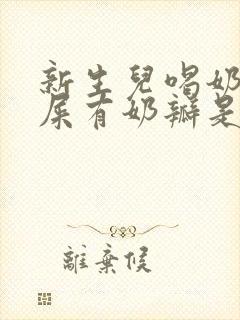 新生兒喝奶
屎有奶瓣是
離棄候